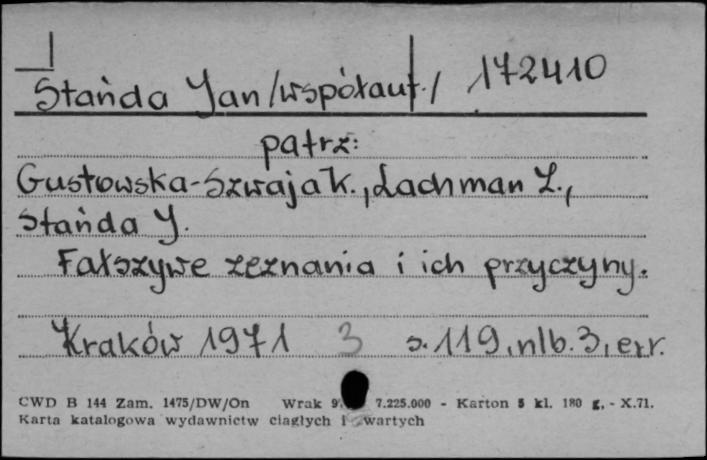 Stańda Jan /współaut./ 172410
patrz:
Gustowska-Szwaja K., Lachman Z.,
Stańda J.
Fałszywe zeznania i ich przyczyny.
Kraków 1971 3 s. 119, nlb. 3, err.
CWD B 144 Zam. 1475/DW/On Wrak 7.225.000 - Karton 5 kl. 180 g. - X.71.
Karta katalogowa wydawnictw ciągłych i zwartych